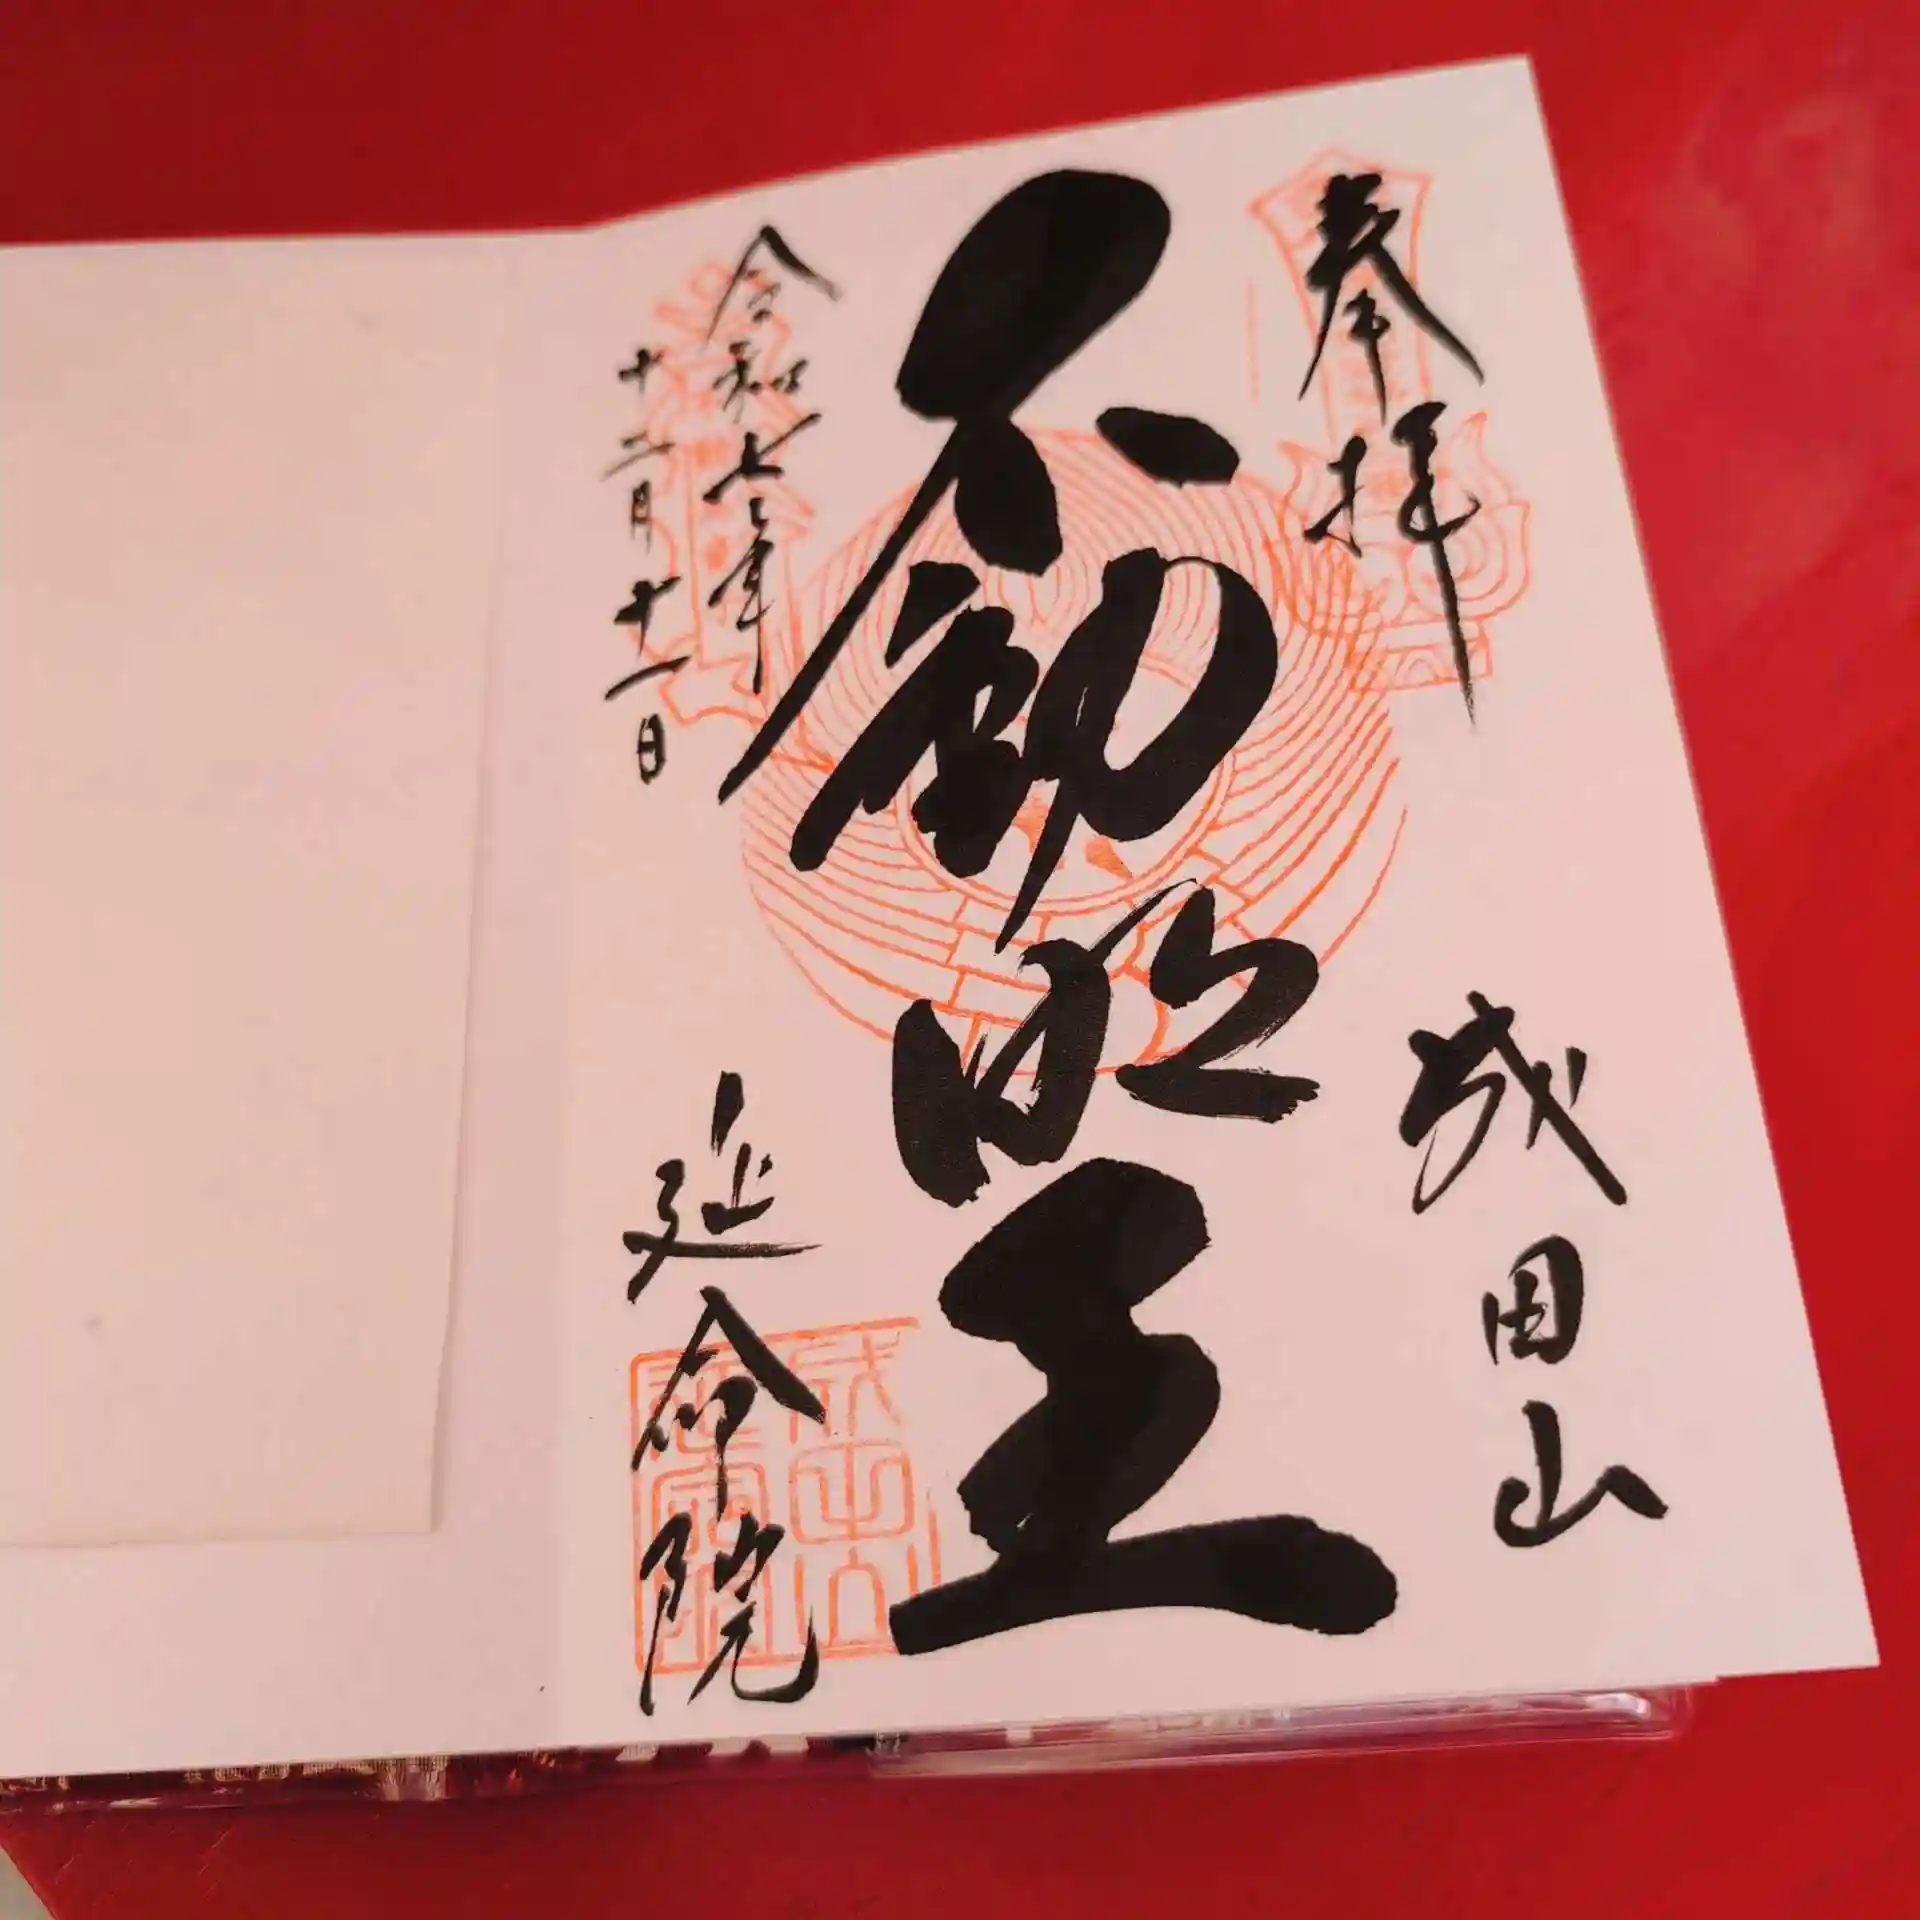 奉拝
成田山
不動明王
令和七年
十二月十一日
延命院